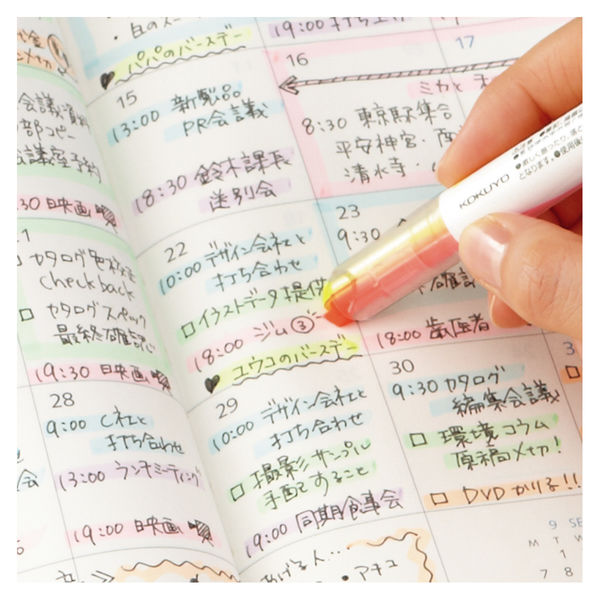 パパのバースデー
19:00
15
13:00 新製品
PR会議
18:30 鈴木課長
送別会
16
17
8:30 東京駅集合
平安神宮・
清水寺・
KOKUYO
19:30 映画
カタログ
check back
□ カタログスペック
最終確認
19:30 映画
22
10:00 デザイン会社と
打ち合わせ
□ イラストデータ提供
18:00 ジム③
ユウコのバースデー
23
9:30
18:00 歯医者
28
9:00 C社と
打ち合わせ
13:00 ランチミーティング
19:00 映画
29
10:00 デザイン会社と
打ち合わせ
□ 撮影サンプル
手配すること
19:00 同期食事会
30
9:30 カタログ
編集会議
□ 環境コラム
原稿〆切!
□ DVDかりる!!
あげる人…
・アキコ
9 SE
M T W
1
7 8